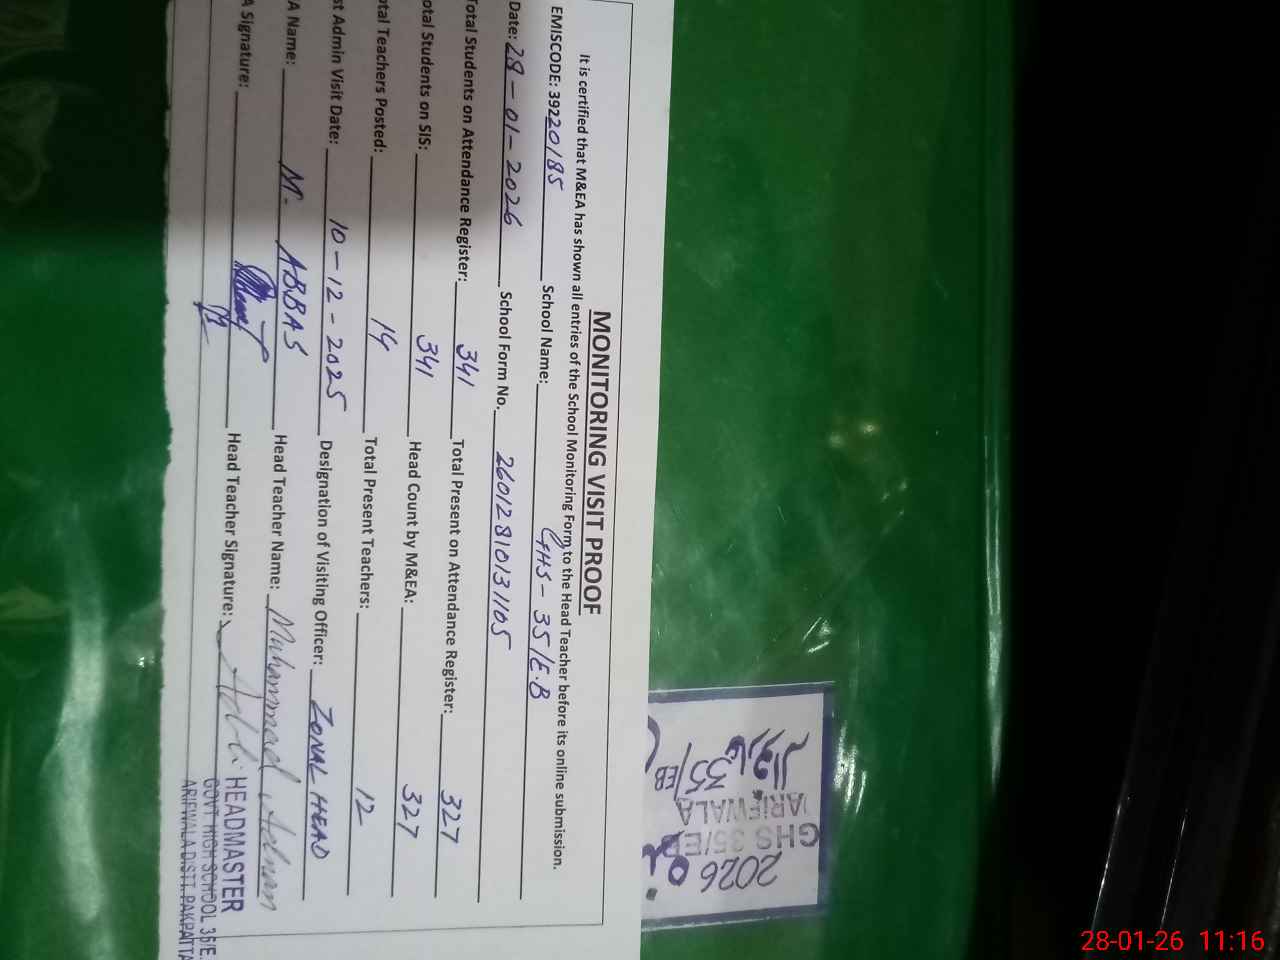 MONITORING VISIT PROOF
It is certified that M&EA has shown all entries of the School Monitoring Form to the Head Teacher before its online submission.
EMISCODE: 39220185 School Name: GHS - 35/E.B
Date: 28-01-2026 School Form No. 26012810131105
Total Students on Attendance Register: 341 Total Present on Attendance Register: 327
otal Students on SIS: 341 Head Count by M&EA: 327
otal Teachers Posted: 14 Total Present Teachers: 12
st Admin Visit Date: 10-12-2025 Designation of Visiting Officer: ZONAL HEAD
A Name: M. ABBAS Head Teacher Name: Muhammad Adnan
A Signature: Head Teacher Signature:
HEADMASTER
GOVT. HIGH SCHOOL 35/E.
ARIFWALA DISTT. PAKPATTA
35/EB
ARIFWALA
GHS 35/EB
2026
28-01-26 11:16